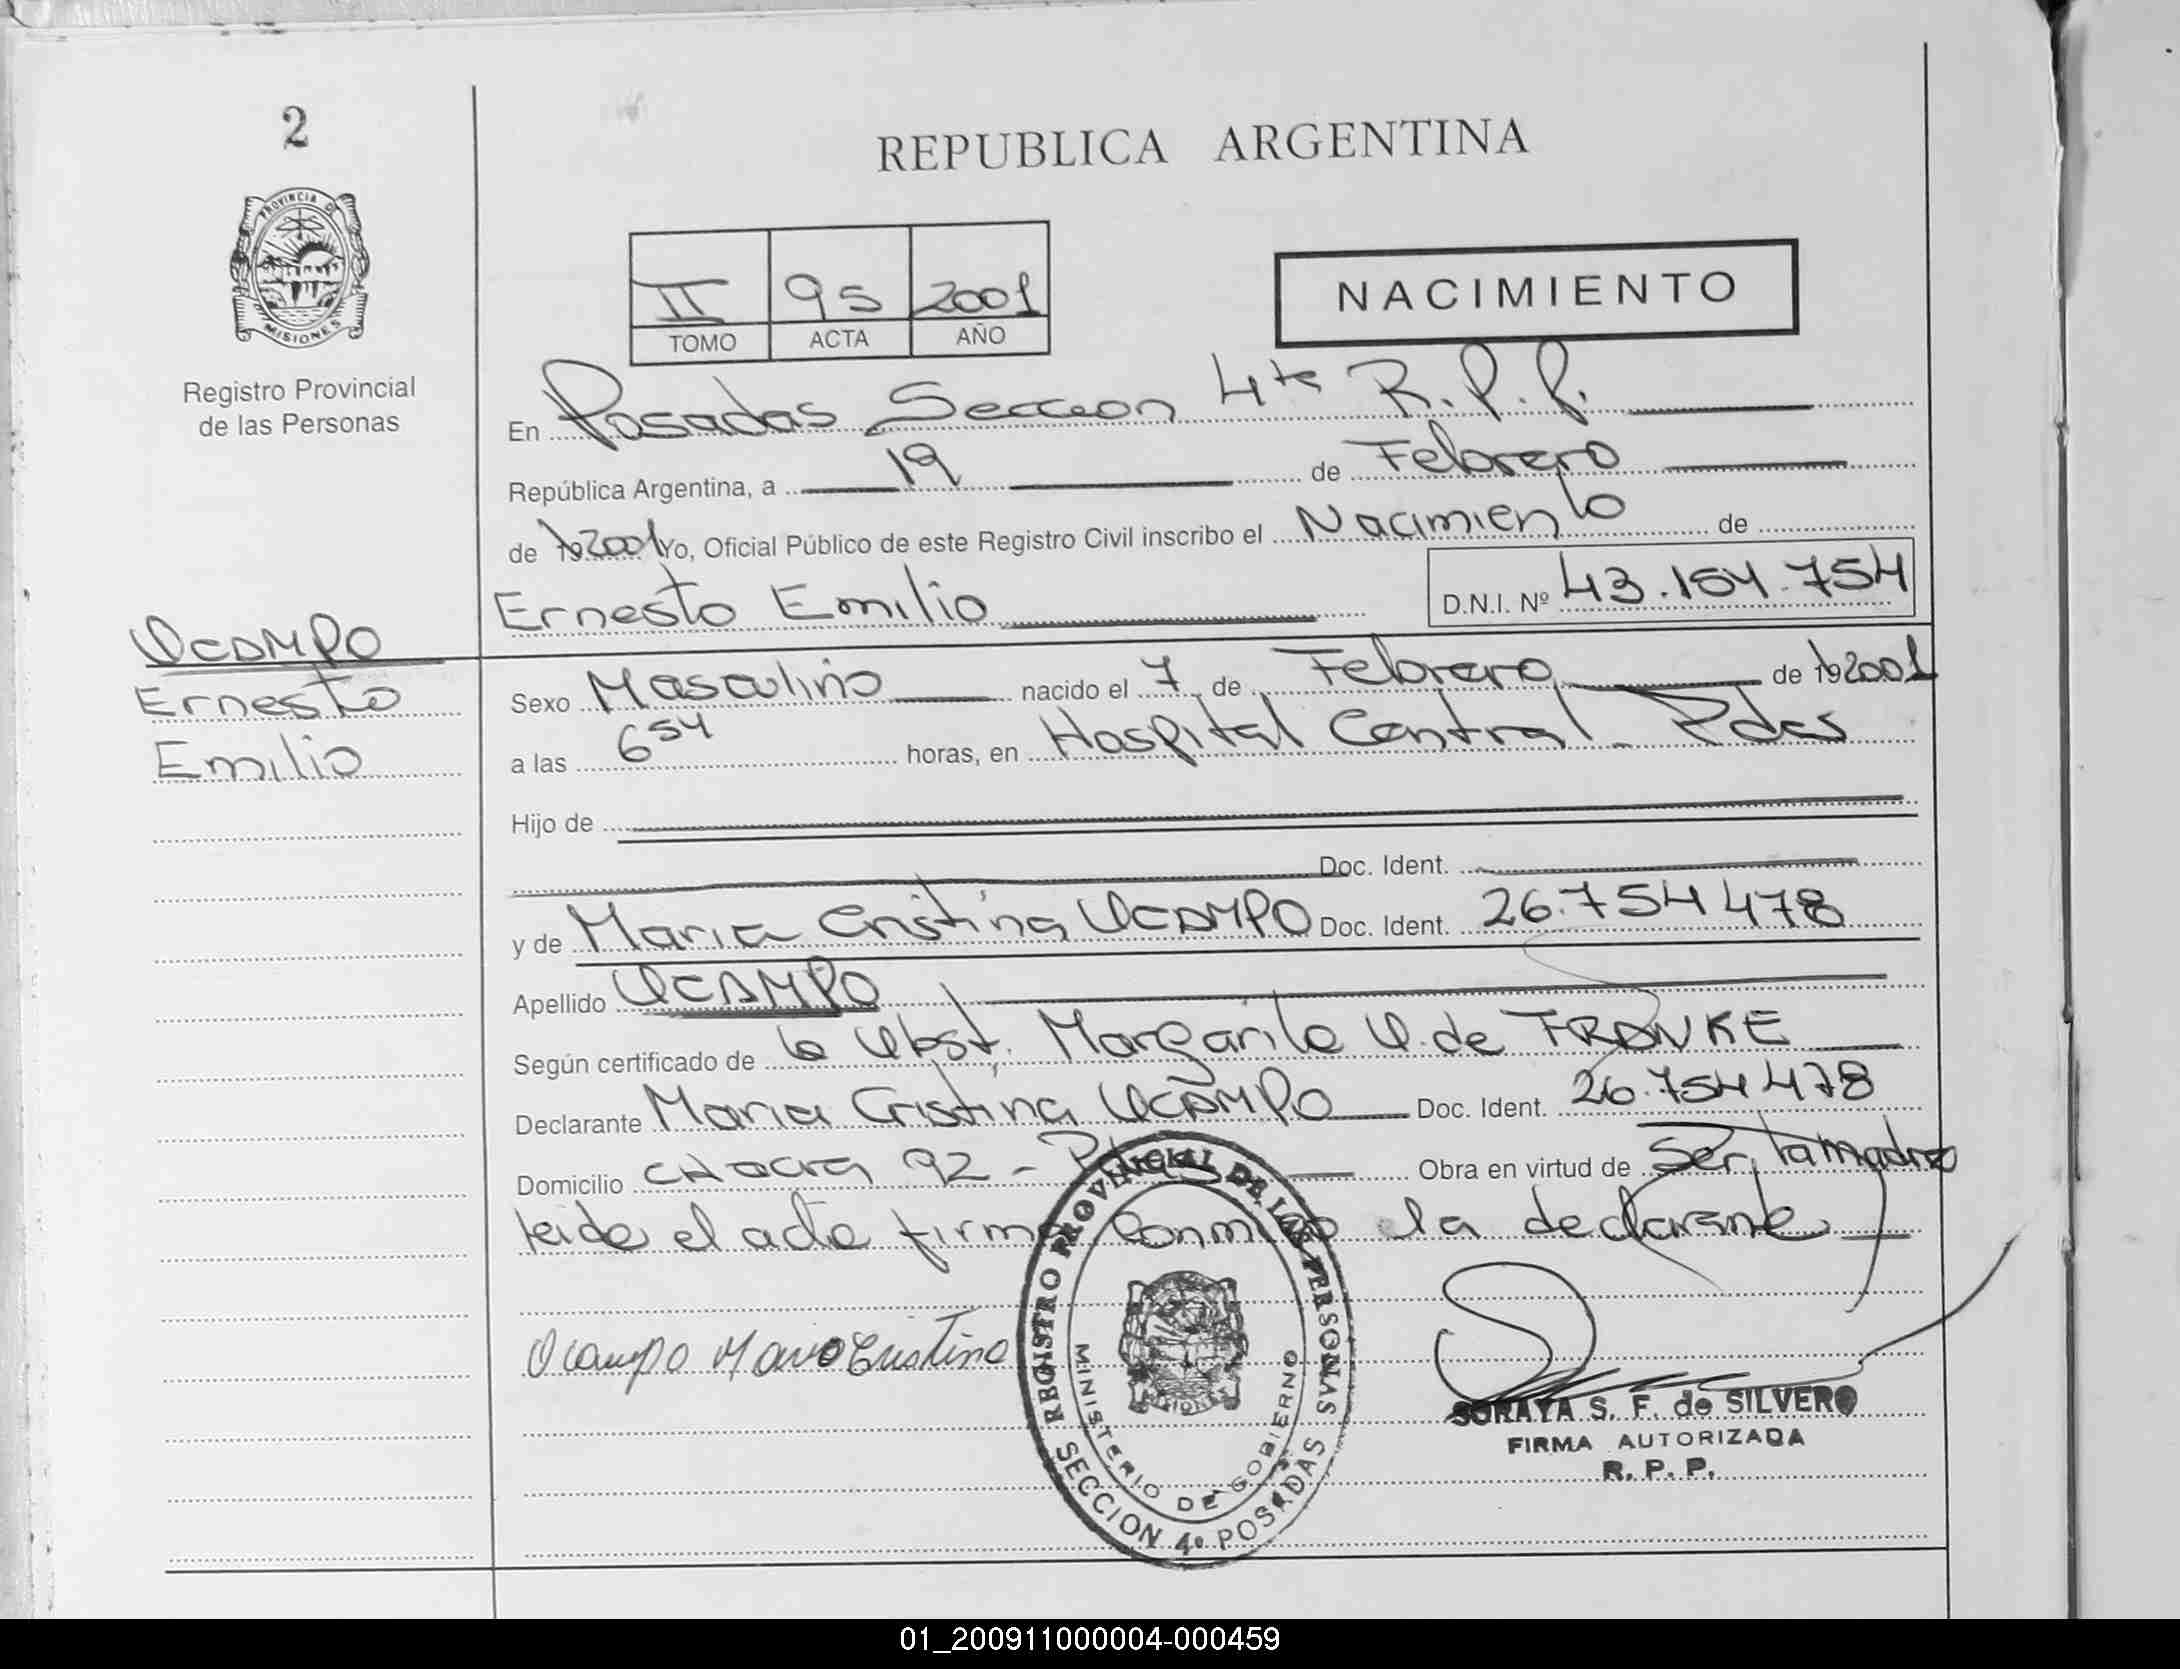 2
PROVINCIA DE
MISIONES
Registro Provincial
de las Personas
OCAMPO
Ernesto
Emilio
REPUBLICA ARGENTINA
II 95 2001
TOMO ACTA AÑO
NACIMIENTO
En Posadas Seccion 4ta R.P.P.
República Argentina, a 19 de Febrero
de 19 2001 Yo, Oficial Público de este Registro Civil inscribo el Nacimiento de
Ernesto Emilio D.N.I. Nº 43.154.754
Sexo Masculino nacido el 7 de Febrero de 19 2001
a las 6 54 horas, en Hospital Central Pdas
Hijo de
Doc. Ident.
y de Maria Cristina OCAMPO Doc. Ident. 26.754 478
Apellido OCAMPO
Según certificado de la Obst. Margarita O. de FRANKE
Declarante Maria Cristina OCAMPO Doc. Ident. 26.754 478
Domicilio CHacra 92 - Pdas Obra en virtud de Ser la madre
leida el acta firma conmigo la declarante
Ocampo Maria Cristina
REGISTRO PROVINCIAL DE LAS PERSONAS
MINISTERIO DE GOBIERNO
SECCION 4º POSADAS
SORAYA S. F. de SILVERO
FIRMA AUTORIZADA
R. P. P.
01_200911000004-000459